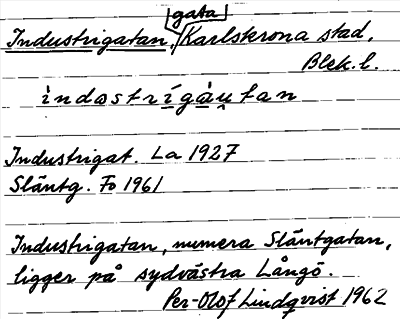 gata
Industrigatan, Karlskrona stad,
Blek. l.
indostrígàu̯tan
Industrigat. La 1927
Släntg. Fo 1961
Industrigatan, numera Släntgatan,
ligger på sydvästra Långö.
Per-Olof Lindqvist 1962